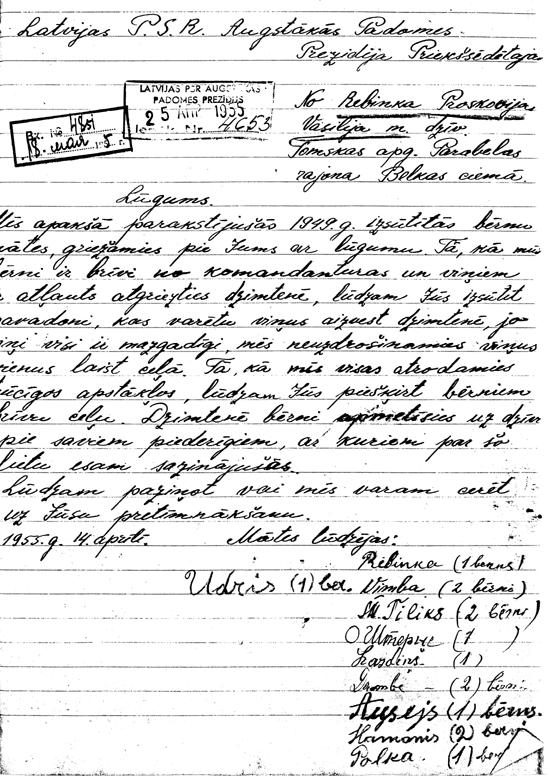 Latvijas P.S.R. Augstākās Padomes
Prezidija Priekšsēdētājam
LATVIJAS PSR AUGSTĀKĀS
PADOMES PREZIDIJS
25 1955
Nr. 4653
No Rebinka Proskovijas
Vasilija m. dzīv.
Tomskas apg. Parabelas
rajona Belkas ciemā.
Lūgums.
Mēs apakšā parakstījušās 1949.g. izsūtītās bērnu
mātes, griežamies pie Jums ar lūgumu. Tā, kā mūsu
bērni ir brīvi no komandanturas un viņiem
ir atļauts atgriezties dzimtenē, lūdzam Jūs izsūtīt
pavadoni, kas varētu viņus aizvest dzimtenē, jo
viņi visi ir mazgadīgi, mēs neuzdrošinamies viņus
vienus laist ceļā. Tā, kā mēs visas atrodamies
trūcīgos apstākļos, lūdzam Jūs piešķirt bērniem
brīvu ceļu. Dzimtenē bērni apmetīsies uz dzīvi
pie saviem piederīgiem, ar kuriem par šo
lietu esam sazinājušās.
Lūdzam paziņot vai mēs varam cerēt
uz Jūsu pretimnākšanu.
1955.g. 14. aprīlī. Mātes lūdzējas:
Rebinka (1 berns)
Udris (1) ber. Nimba (2 bērni)
Tiliks (2 bērni)
(1 )
Lazdiņš (1)
(2) bērni.
(1) bērns.
Hamanis (2) bērni
Polka. (1) ber